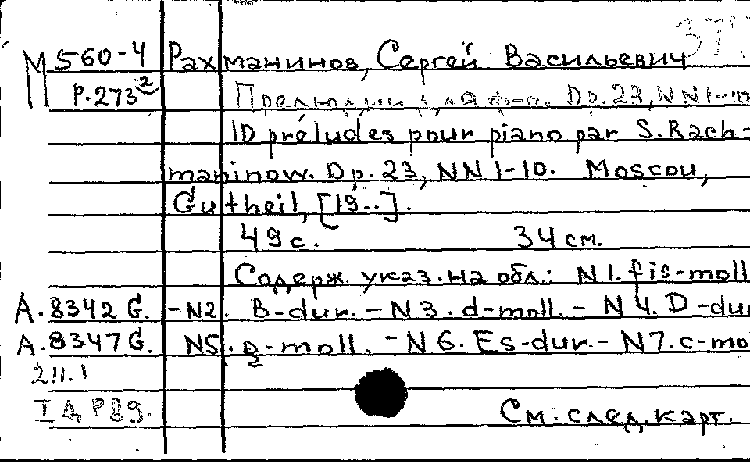 М 560-4 Рахманинов, Сергей Васильевич
Р.273² Прелюдии для ф-п. Op. 23, NN 1-10
10 préludes pour piano par S. Rach-
maninow. Op. 23, NN 1-10. Moscou,
Gutheil, [19..].
49 с. 34 см.
Содерж. указ. на обл.: N 1. fis-moll
А. 8342 G. -N2. B-dur. - N 3. d-moll. - N 4. D-dur
А. 8347 G. N5. g-moll. - N 6. Es-dur. - N 7. c-mo
2.11.1
I Д Р 89.
См. след. карт.